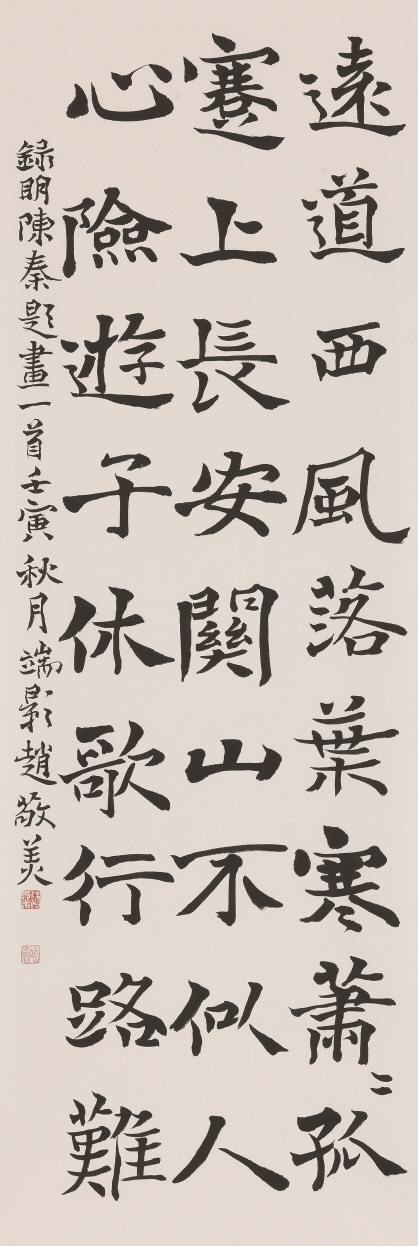 遠道西風落葉寒蕭〻孤
蹇上長安關山不似人
心險遊子休歌行路難
録明陳秦題畫一首壬寅秋月端影趙敬美